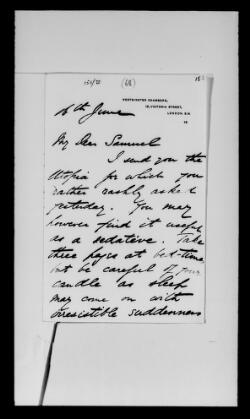 (68)
WESTMINSTER CHAMBERS,
13, VICTORIA STREET,
LONDON, S.W.
18
6th June
My Dear Samuel
I send you the
Utopia for which you
rather rashly asked
yesterday. You may
however find it useful
as a sedative. Take
three pages at bed-time
but be careful of your
candle as sleep
may come on with
irresistible suddenness